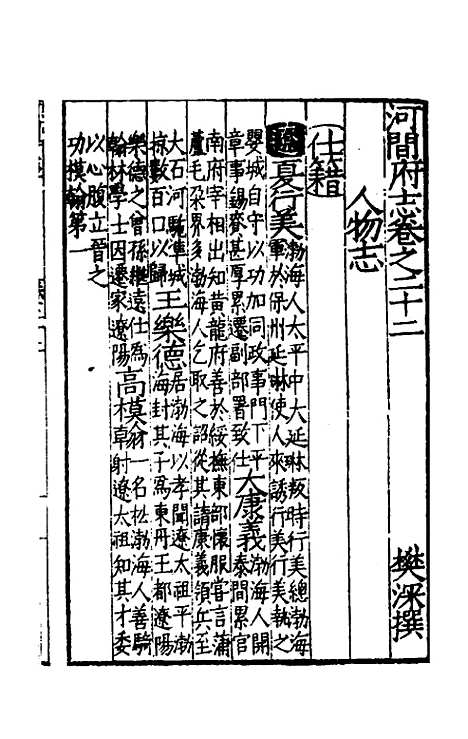 河間府志卷之二十二
樊深撰
人物志
仕籍
遼
夏行美
渤海人太平中大延琳叛時行美總渤海
軍於保州延琳使人來誘行美行美執之
嬰城自守以功加同政事門下平
章事錫賚甚厚累遷副部署致仕
大康義
渤海人開
泰間累官
南府宰相出知黃龍府善於綏撫東部懷服嘗言蒲
蘆毛朶界多渤海人乞取之詔從其請康義領兵至
大石河駝準城
掠數百口以歸
王樂德
居渤海以孝聞遼太祖平渤
海封其子為東丹王都遼陽
樂德之曾孫繼遠仕為
翰林學士因遷家遼陽
高模翰
一名松渤海人善騎
射遼太祖知其才委
以心腹立晉之
功模翰第一